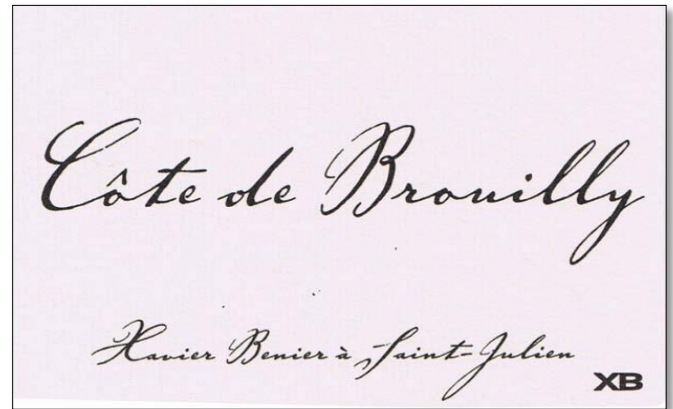 Côte de Brouilly
Xavier Benier à Saint-Julien
XB